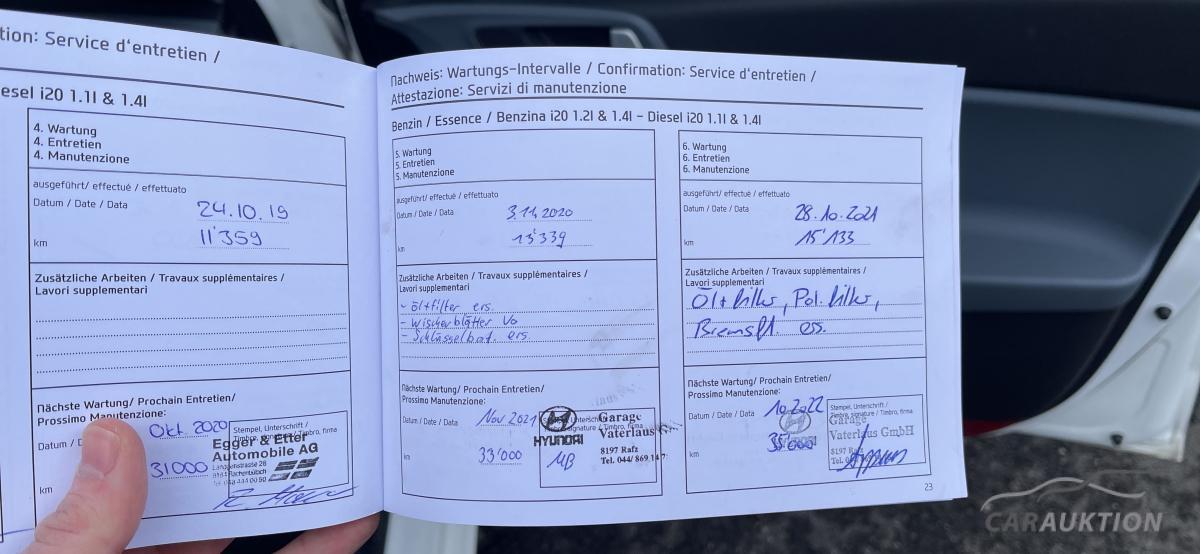 tion: Service d'entretien /
esel i20 1.1l & 1.4l
4. Wartung
4. Entretien
4. Manutenzione
ausgeführt/ effectué / effettuato
Datum / Date / Data 24.10.19
km 11'359
Zusätzliche Arbeiten / Travaux supplémentaires /
Lavori supplementari
Nächste Wartung/ Prochain Entretien/
Prossimo Manutenzione:
Datum / D Okt. 2020
km 31000
Stempel, Unterschrift /
Timbro, firma
Egger & Etter
Automobile AG
Nachweis: Wartungs-Intervalle / Confirmation: Service d'entretien /
Attestazione: Servizi di manutenzione
Benzin / Essence / Benzina i20 1.2l & 1.4l – Diesel i20 1.1l & 1.4l
5. Wartung
5. Entretien
5. Manutenzione
ausgeführt/ effectué / effettuato
Datum / Date / Data 3.11.2020
km 13'339
Zusätzliche Arbeiten / Travaux supplémentaires /
Lavori supplementari
- öl+filter ers.
- Wischerblätter Vo
- Schlüsselbat. ers.
Nächste Wartung/ Prochain Entretien/
Prossimo Manutenzione:
Datum / Date / Data Nov 2021
33'000
HYUNDAI
MB
Garage
Vaterlaus
8197 Rafz
Tel. 044/ 869 14 7
6. Wartung
6. Entretien
6. Manutenzione
ausgeführt/ effectué / effettuato
Datum / Date / Data 28.10.2021
km 15'133
Zusätzliche Arbeiten / Travaux supplémentaires /
Lavori supplementari
Öl+filter, Pol. filter,
Bremsfl. ers.
Nächste Wartung/ Prochain Entretien/
Prossimo Manutenzione:
Datum / Date / Data 10.2022
km 35'000
Stempel, Unterschrift /
Timbre, signature / Timbro, firma
Garage
Vaterlaus GmbH
8197 Rafz
Tel.
23
CARAUKTION